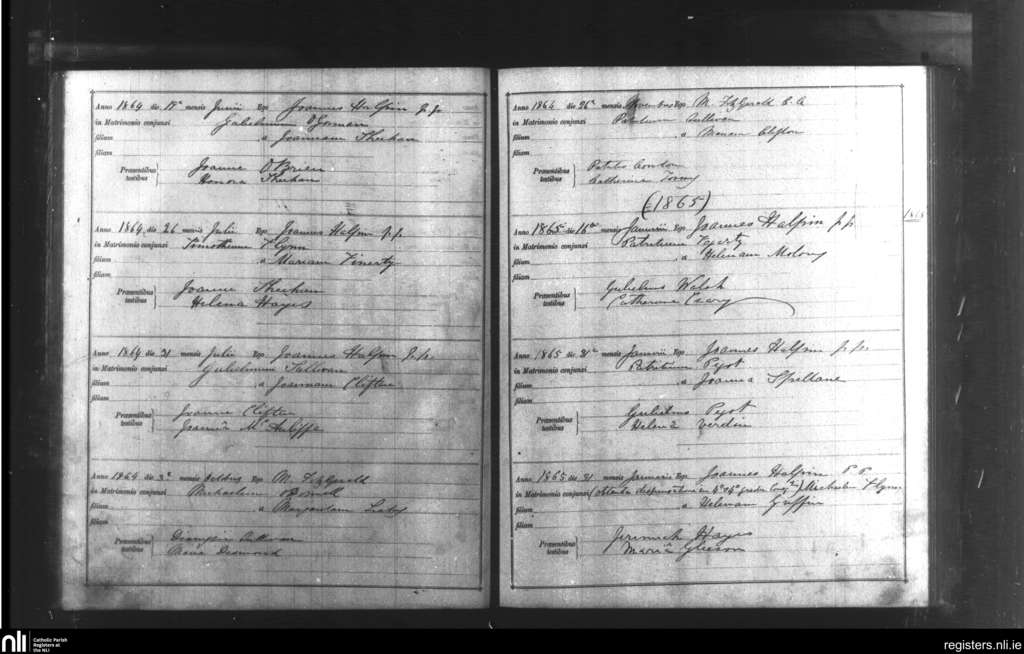 Anno 1864 die 17a mensis Junii Ego Joannes Halpin p.p.
in Matrimonio conjunxi Gulielmum O'Gorman
filium a Joannam Sheehan
filiam
Præsentibus testibus Joanne O'Brien
Honora Sheehan
Anno 1864 die 26 mensis Julii Ego Joannes Halpin p.p.
in Matrimonio conjunxi Timotheum Flynn
filium a Mariam Finerty
filiam
Præsentibus testibus Joanne Sheehan
Helena Hayes
Anno 1864 die 31 mensis Julii Ego Joannes Halpin p.p.
in Matrimonio conjunxi Gulielmum Sullivan
filium a Joannam Clifton
filiam
Præsentibus testibus Joanne Clifton
Joanna McAuliffe
Anno 1864 die 3a mensis Octobris Ego M. FitzGerald
in Matrimonio conjunxi Michaelem
filium a Margaritam
filiam
Præsentibus testibus Sullivan
Maria Desmond
Anno 1864 die 26a mensis Novembris Ego M. FitzGerald C.C.
in Matrimonio conjunxi Patritium Sullivan
filium a Mariam Clifton
filiam
Præsentibus testibus Condon
Catherina
(1865)
Anno 1865 die 16a mensis Januarii Ego Joannes Halpin p.p.
in Matrimonio conjunxi Patritium
filium a Helenam Molony
filiam
Præsentibus testibus Gulielmo Welsh
Catherina
Anno 1865 die 21a mensis Januarii Ego Joannes Halpin p.p.
in Matrimonio conjunxi Patritium Pyot
filium a Joanna Spellane
filiam
Præsentibus testibus Gulielmo Pyot
Helena Verdin
Anno 1865 die 31 mensis Januarii Ego Joannes Halpin P.P.
in Matrimonio conjunxi (obtenta dispensatione in Michaelem Flynn
filium a Helenam Griffin
filiam
Præsentibus testibus Jeremiah Hayes
Maria Gleeson
nli Catholic Parish
Registers at
the NLI
registers.nli.ie